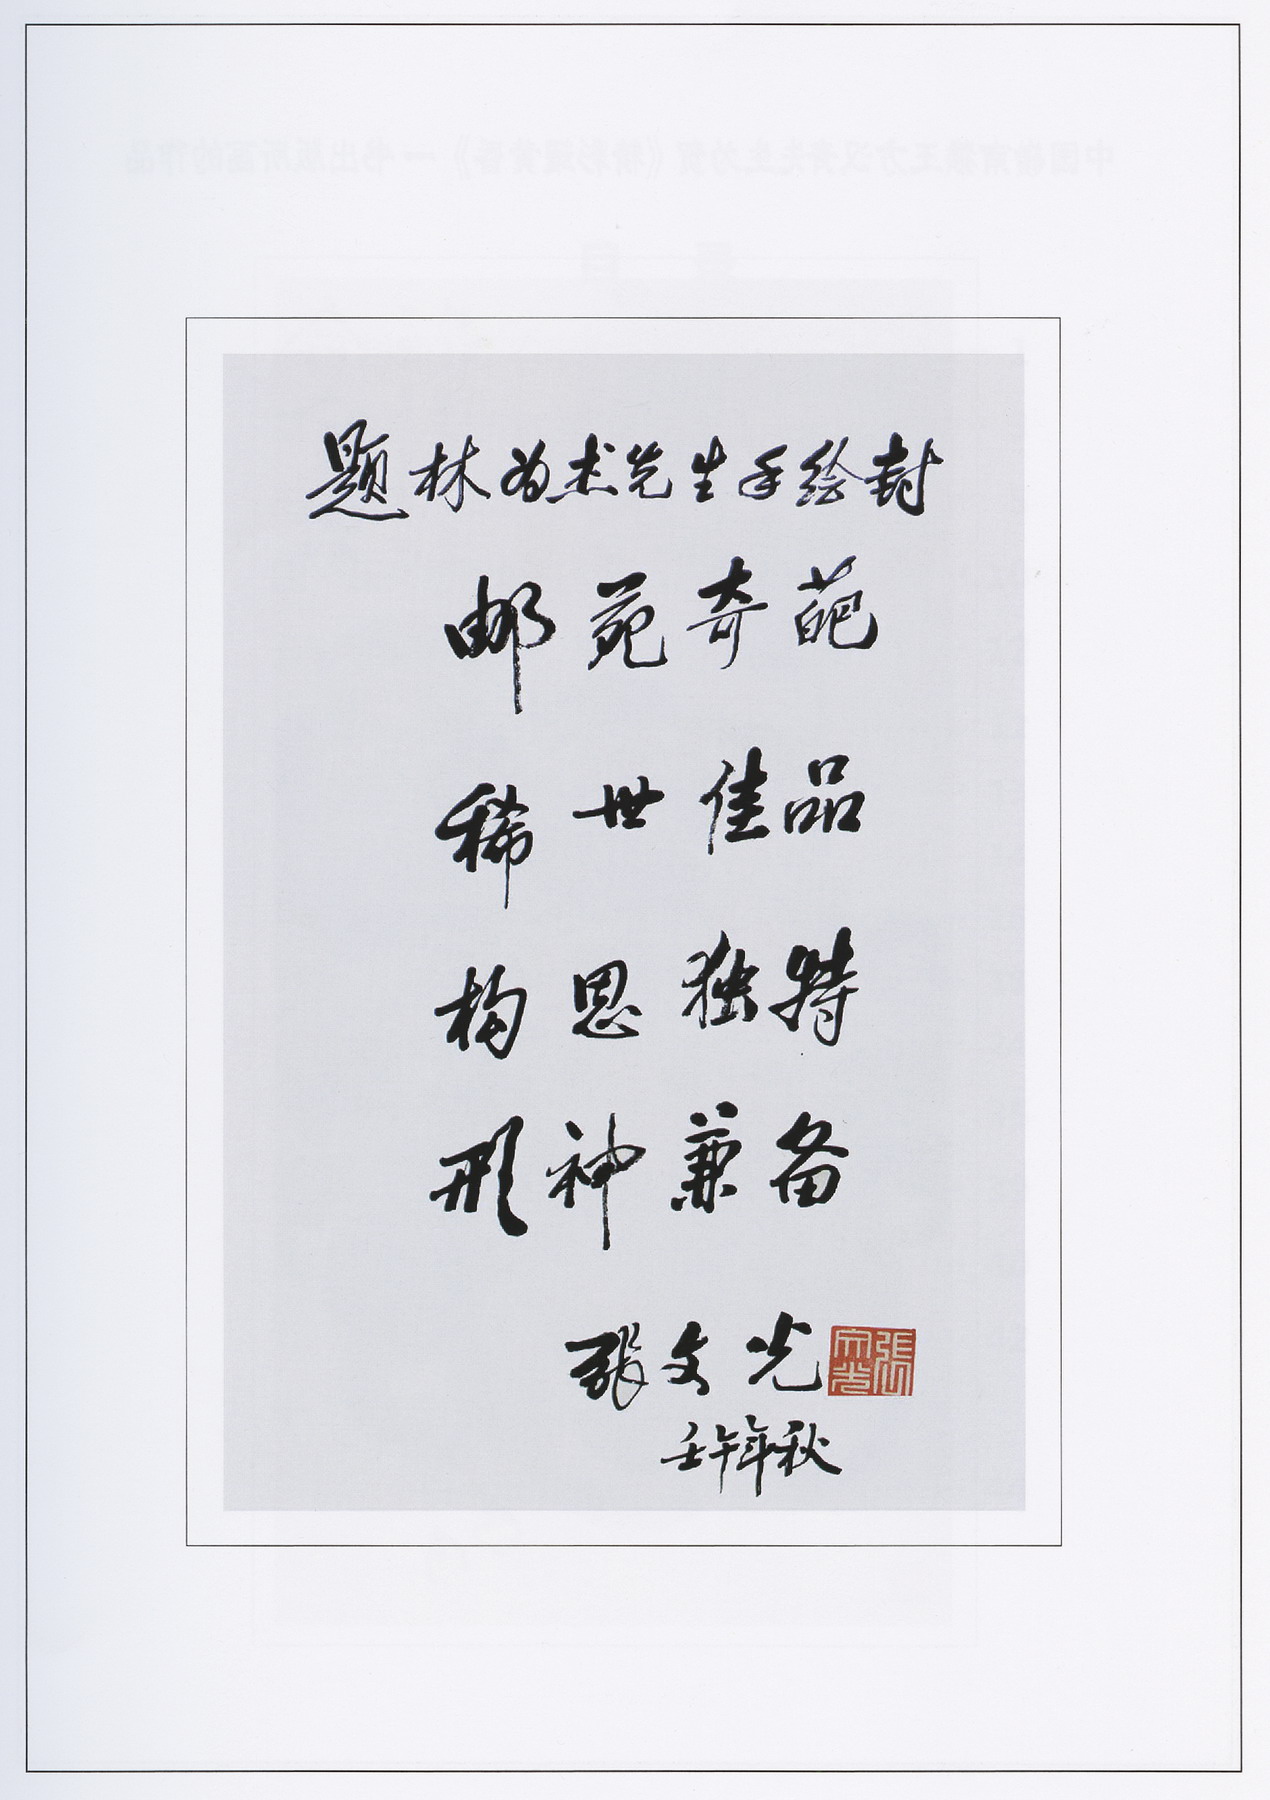 题林为杰先生手绘封
邮苑奇葩
稀世佳品
构思独特
形神兼备
张文光
張文光
壬午年秋